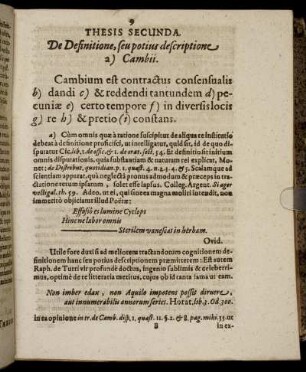 9
THESIS SECUNDA.
De Definitione, seu potius descriptione
a) Cambii.
Cambium est contractus consensualis
b) dandi c) & reddendi tantundem d) pe-
cuniæ e) certo tempore f) in diversis locis
g) re h) & pretio (i) constans.
a) Cùm omnis quæ à ratione suscipitur de aliqua re institutio
debeat à definitione proficisci, ut intelligatur, quid sit, id de quo di-
sputatur Cic. lib. 1. de offic. &
omnis disputationis, quia substantiam & naturam rei explicat, Mo-
net: de Distribut. quotidian. p. 1. quæst. 4. n. 2. 4. & 5.
scientiam apparat, qui neglectis pronus ad modum & præceptæ tra-
ctationem rerum ipsarum, solet esse lapsus. Colleg. Argent.
th. 59. Adeo, ut ei, qui ignorat notionem illam, quovis
assere magna molliri putent: Nam
Effossò es lumine Cyclops
Hinc ne labor omnis
Sterilem vanescas in herbam.
Ovid.
Utile fore duxi si ad meliorem tractandorum cognitionem de-
finitionem hanc seu potius descriptionem præmitterem: Est autem
Raph. de Turri vir profundè doctus, ingenio sublimis & celeberri-
mus, optimè de re litteraria meritus, cujus ob id tanta fama ut eam
Non imber edax, non Aquilo impotens possit diruere,
aut innumerabilis annorum series. Horat. lib. 3. Od. 30.
in ea opinione in tr. de Camb. disp. 1. quæst. 11. §. 2. & 8. pag. mihi 33. ut
B in ex-